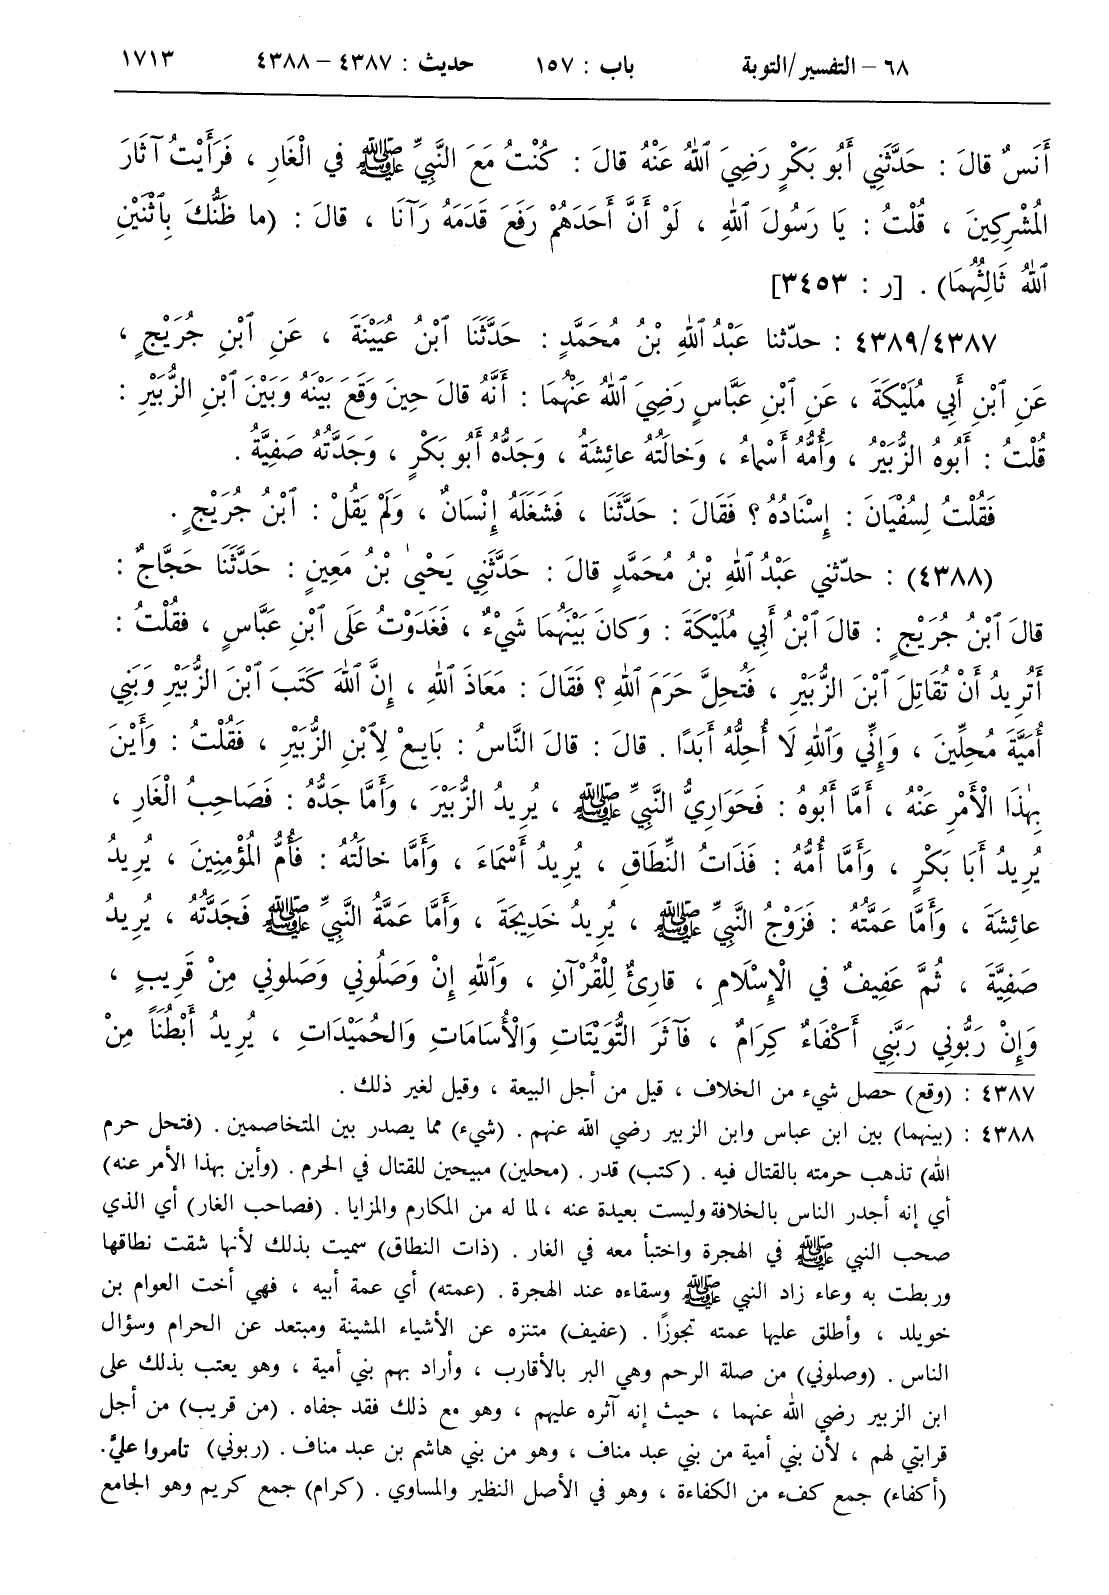 ٦٨ – التفسير/التوبة باب : ١٥٧ حديث : ٤٣٨٧ – ٤٣٨٨ ١٧١٣
أَنَسٌ قالَ : حَدَّثَنِي أَبُو بَكْرٍ رَضِيَ ٱللهُ عَنْهُ قالَ : كُنْتُ مَعَ النَّبِيِّ ﷺ في الْغَارِ ، فَرَأَيْتُ آثَارَ
المُشْرِكِينَ ، قُلْتُ : يَا رَسُولَ ٱللهِ ، لَوْ أَنَّ أَحَدَهُمْ رَفَعَ قَدَمَهُ رَآنَا ، قالَ : (ما ظَنُّكَ بِٱثْنَيْنِ
ٱللهُ ثَالِثُهُمَا) . [ر : ٣٤٥٣]
٤٣٨٩/٤٣٨٧ : حدّثنا عَبْدُ ٱللهِ بْنُ مُحَمَّدٍ : حَدَّثَنَا ٱبْنُ عُيَيْنَةَ ، عَنِ ٱبْنِ جُرَيْجٍ ،
عَنِ ٱبْنِ أَبِي مُلَيْكَةَ ، عَنِ ٱبْنِ عَبَّاسٍ رَضِيَ ٱللهُ عَنْهُمَا : أَنَّهُ قالَ حِينَ وَقَعَ بَيْنَهُ وَبَيْنَ ٱبْنِ الزُّبَيْرِ :
قُلْتُ : أَبُوهُ الزُّبَيْرُ ، وَأُمُّهُ أَسْماءُ ، وَخالَتُهُ عائِشَةُ ، وَجَدُّهُ أَبُو بَكْرٍ ، وَجَدَّتُهُ صَفِيَّةُ .
فَقُلْتُ لِسُفْيَانَ : إِسْنَادُهُ ؟ فَقَالَ : حَدَّثَنَا ، فَشَغَلَهُ إِنْسَانٌ ، وَلَمْ يَقُلْ : ٱبْنُ جُرَيْجٍ .
(٤٣٨٨) : حدّثني عَبْدُ ٱللهِ بْنُ مُحَمَّدٍ قالَ : حَدَّثَنِي يَحْيىٰ بْنُ مَعِينٍ : حَدَّثَنَا حَجَّاجٌ :
قالَ ٱبْنُ جُرَيْجٍ : قالَ ٱبْنُ أَبِي مُلَيْكَةَ : وَكانَ بَيْنَهُمَا شَيْءٌ ، فَغَدَوْتُ عَلَى ٱبْنِ عَبَّاسٍ ، فَقُلْتُ :
أَتُرِيدُ أَنْ تُقَاتِلَ ٱبْنَ الزُّبَيْرِ ، فَتُحِلَّ حَرَمَ ٱللهِ ؟ فَقَالَ : مَعَاذَ ٱللهِ ، إِنَّ ٱللهَ كَتَبَ ٱبْنَ الزُّبَيْرِ وَبَنِي
أُمَيَّةَ مُحِلِّينَ ، وَإِنِّي وَٱللهِ لَا أُحِلُّهُ أَبَدًا . قالَ : قالَ النَّاسُ : بَايِعْ لِٱبْنِ الزُّبَيْرِ ، فَقُلْتُ : وَأَيْنَ
بِهٰذَا الْأَمْرِ عَنْهُ ، أَمَّا أَبُوهُ : فَحَوَارِيُّ النَّبِيِّ ﷺ ، يُرِيدُ الزُّبَيْرَ ، وَأَمَّا جَدُّهُ : فَصَاحِبُ الْغَارِ ،
يُرِيدُ أَبَا بَكْرٍ ، وَأَمَّا أُمُّهُ : فَذَاتُ النِّطَاقِ ، يُرِيدُ أَسْمَاءَ ، وَأَمَّا خالَتُهُ : فَأُمُّ المُؤْمِنِينَ ، يُرِيدُ
عائِشَةَ ، وَأَمَّا عَمَّتُهُ : فَزَوْجُ النَّبِيِّ ﷺ ، يُرِيدُ خَدِيجَةَ ، وَأَمَّا عَمَّةُ النَّبِيِّ ﷺ فَجَدَّتُهُ ، يُرِيدُ
صَفِيَّةَ ، ثُمَّ عَفِيفٌ في الْإِسْلَامِ ، قارِئٌ لِلْقُرْآنِ ، وَٱللهِ إِنْ وَصَلُونِي وَصَلونِي مِنْ قَرِيبٍ ،
وَإِنْ رَبُّونِي رَبَّنِي أَكْفَاءٌ كِرَامٌ ، فَآثَرَ التُّوَيْتَاتِ وَالْأُسَامَاتِ وَالحُمَيْدَاتِ ، يُرِيدُ أَبْطُنًا مِنْ
٤٣٨٧ : (وقع) حصل شيء من الخلاف ، قيل من أجل البيعة ، وقيل لغير ذلك .
٤٣٨٨ : (بينهما) بين ابن عباس وابن الزبير رضي الله عنهم . (شيء) مما يصدر بين المتخاصمين . (فتحل حرم
الله) تذهب حرمته بالقتال فيه . (كتب) قدر . (محلين) مبيحين للقتال في الحرم . (وأين بهذا الأمر عنه)
أي إنه أجدر الناس بالخلافة وليست بعيدة عنه ، لما له من المكارم والمزايا . (فصاحب الغار) أي الذي
صحب النبي ﷺ في الهجرة واختبأ معه في الغار . (ذات النطاق) سميت بذلك لأنها شقت نطاقها
وربطت به وعاء زاد النبي ﷺ وسقاءه عند الهجرة . (عمته) أي عمة أبيه ، فهي أخت العوام بن
خويلد ، وأطلق عليها عمته تجوزًا . (عفيف) متنزه عن الأشياء المشينة ومبتعد عن الحرام وسؤال
الناس . (وصلوني) من صلة الرحم وهي البر بالأقارب ، وأراد بهم بني أمية ، وهو يعتب بذلك على
ابن الزبير رضي الله عنهما ، حيث إنه آثره عليهم ، وهو مع ذلك فقد جفاه . (من قريب) من أجل
قرابتي لهم ، لأن بني أمية من بني عبد مناف ، وهو من بني هاشم بن عبد مناف . (ربوني) تامروا عليَّ.
(أكفاء) جمع كفء من الكفاءة ، وهو في الأصل النظير والمساوي . (كرام) جمع كريم وهو الجامع